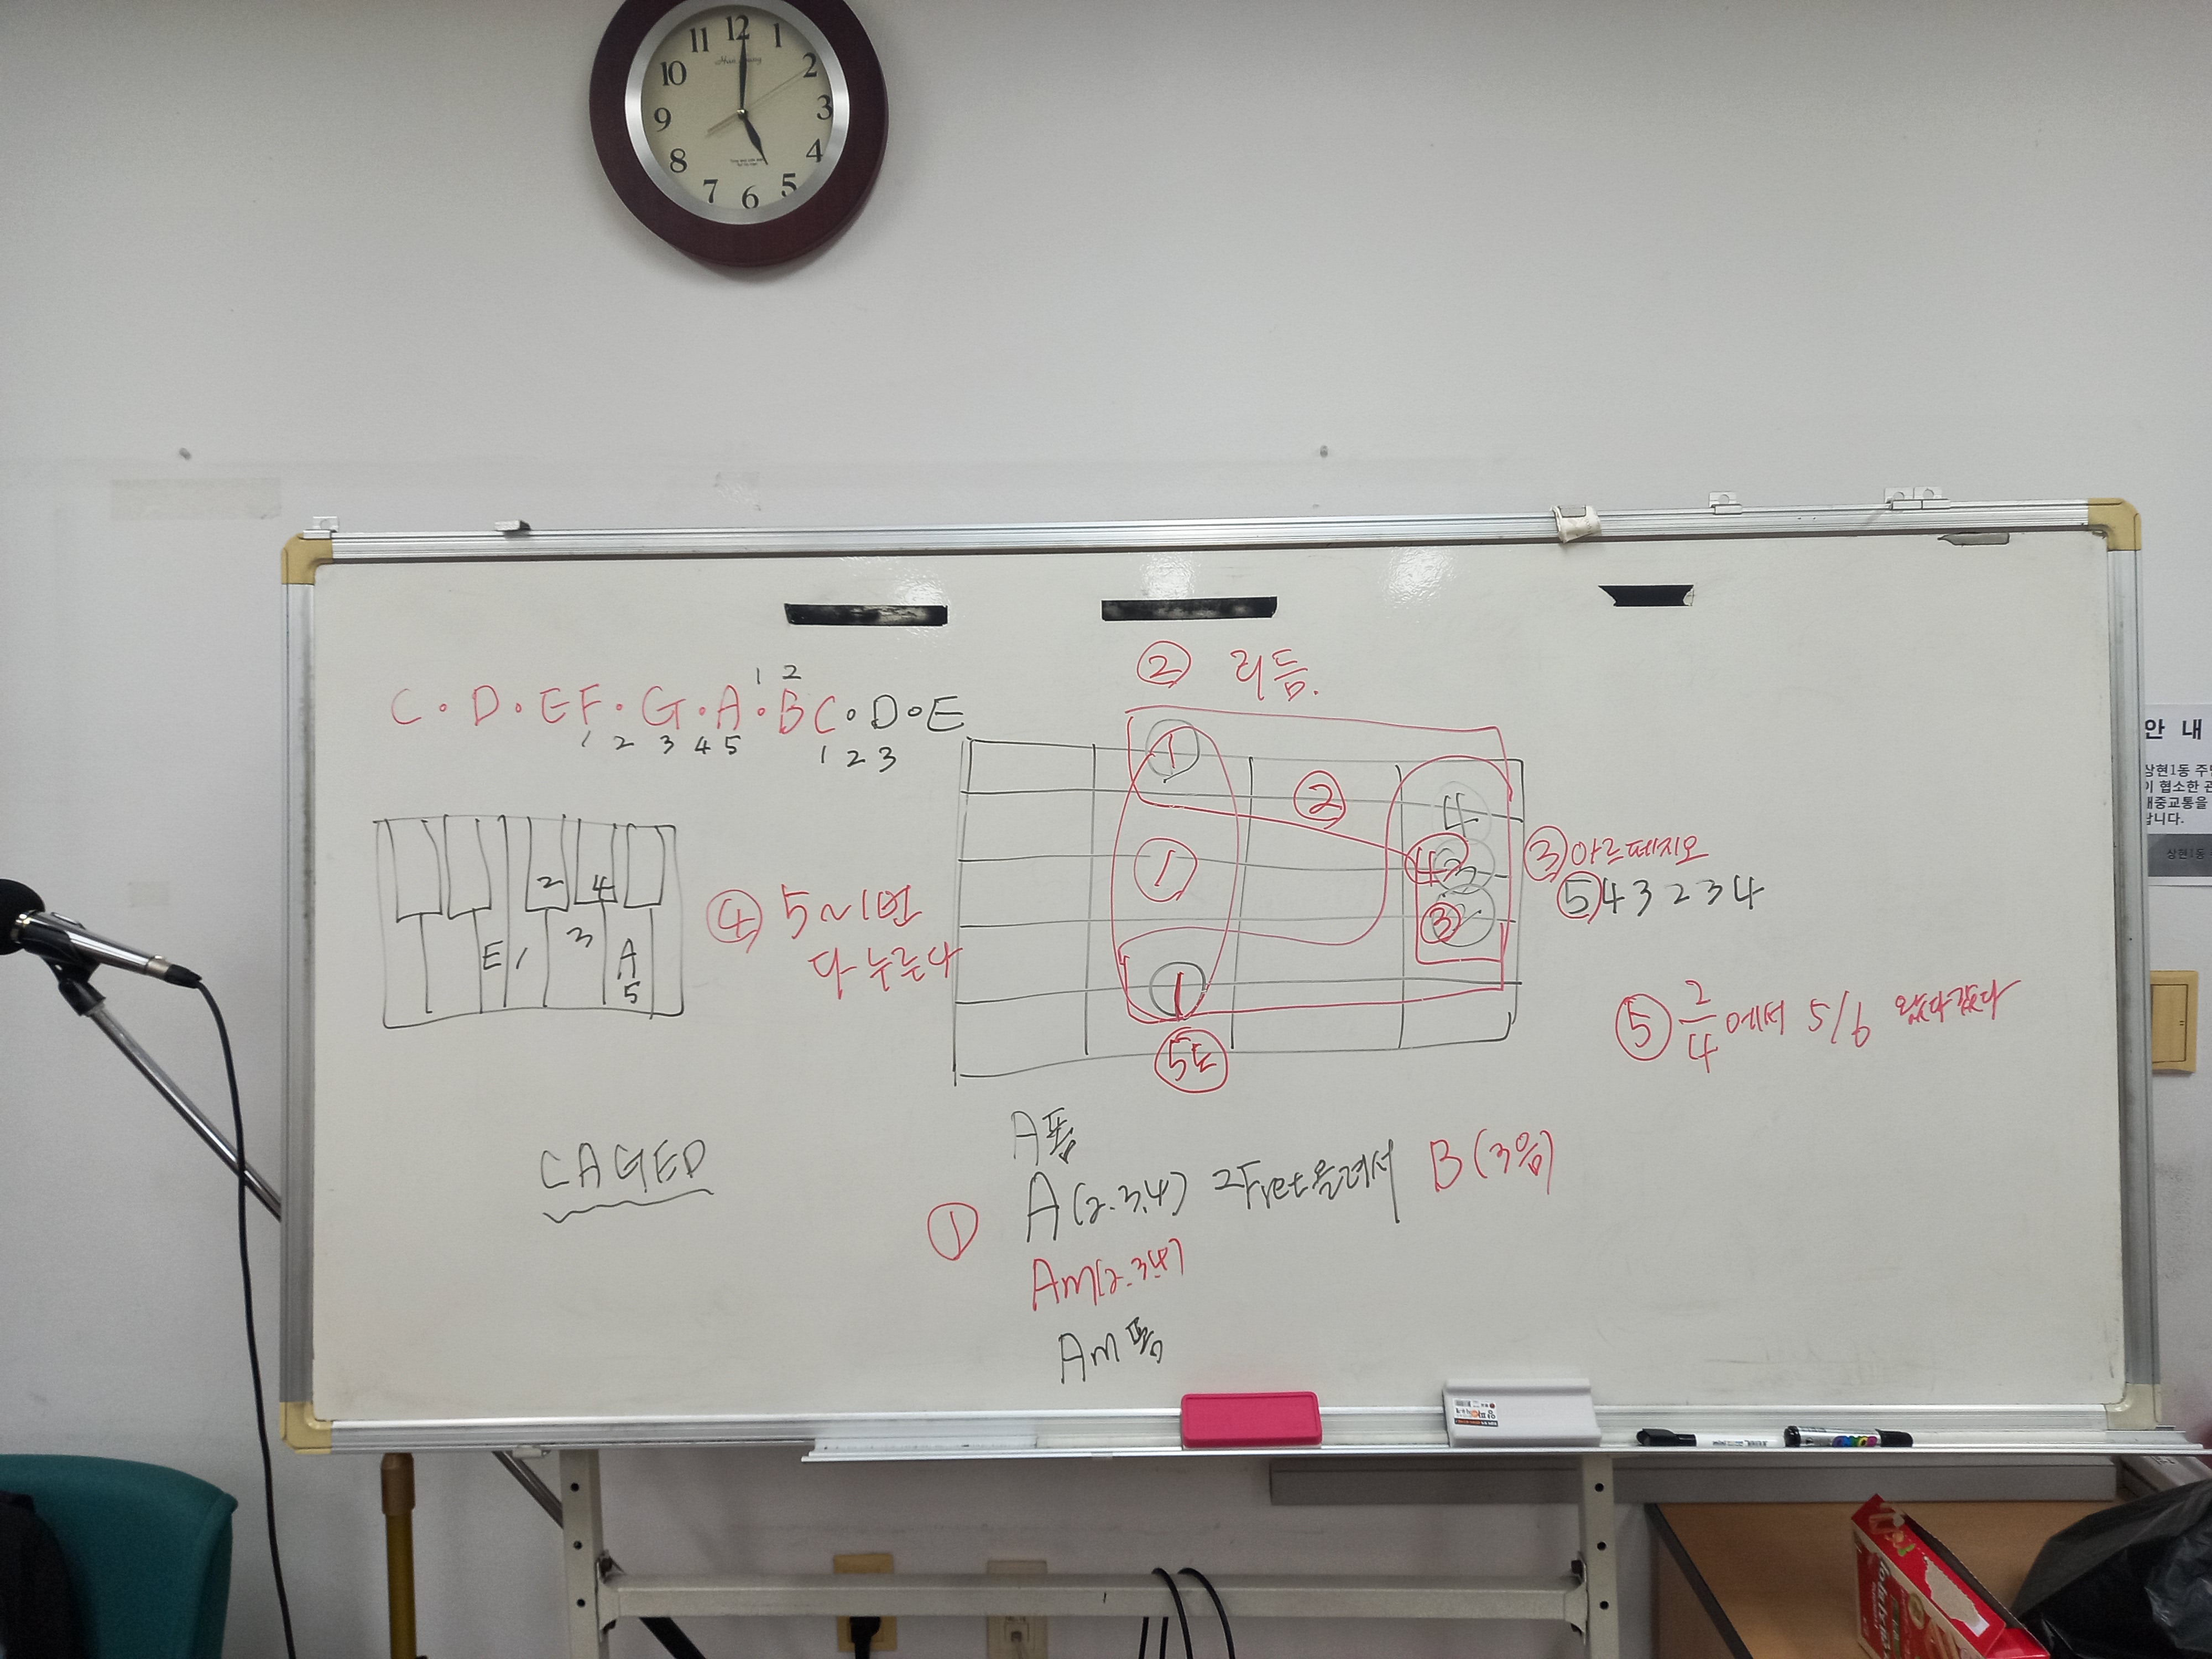 12
11 1
10 2
9 3
8 4
7 5
6
② 리듬.
1 2
C · D · E F · G · A · B C · D · E
1 2 3 4 5 1 2 3
1
②
4
4 3
1
③ 2
1
5도
③ 아르페지오
⑤ 4 3 2 3 4
2 4
3
E 1 A
5
④ 5~1번
다 누른다
⑤ 2/4 에서 5/6 왔다갔다
CAGED
A폼
① A(2.3.4) 2Fret올려서 B(3음)
Am(2.3.4)
Am폼
안 내
상현1동 주민
이 협소한 관
대중교통을
랍니다.
상현1동